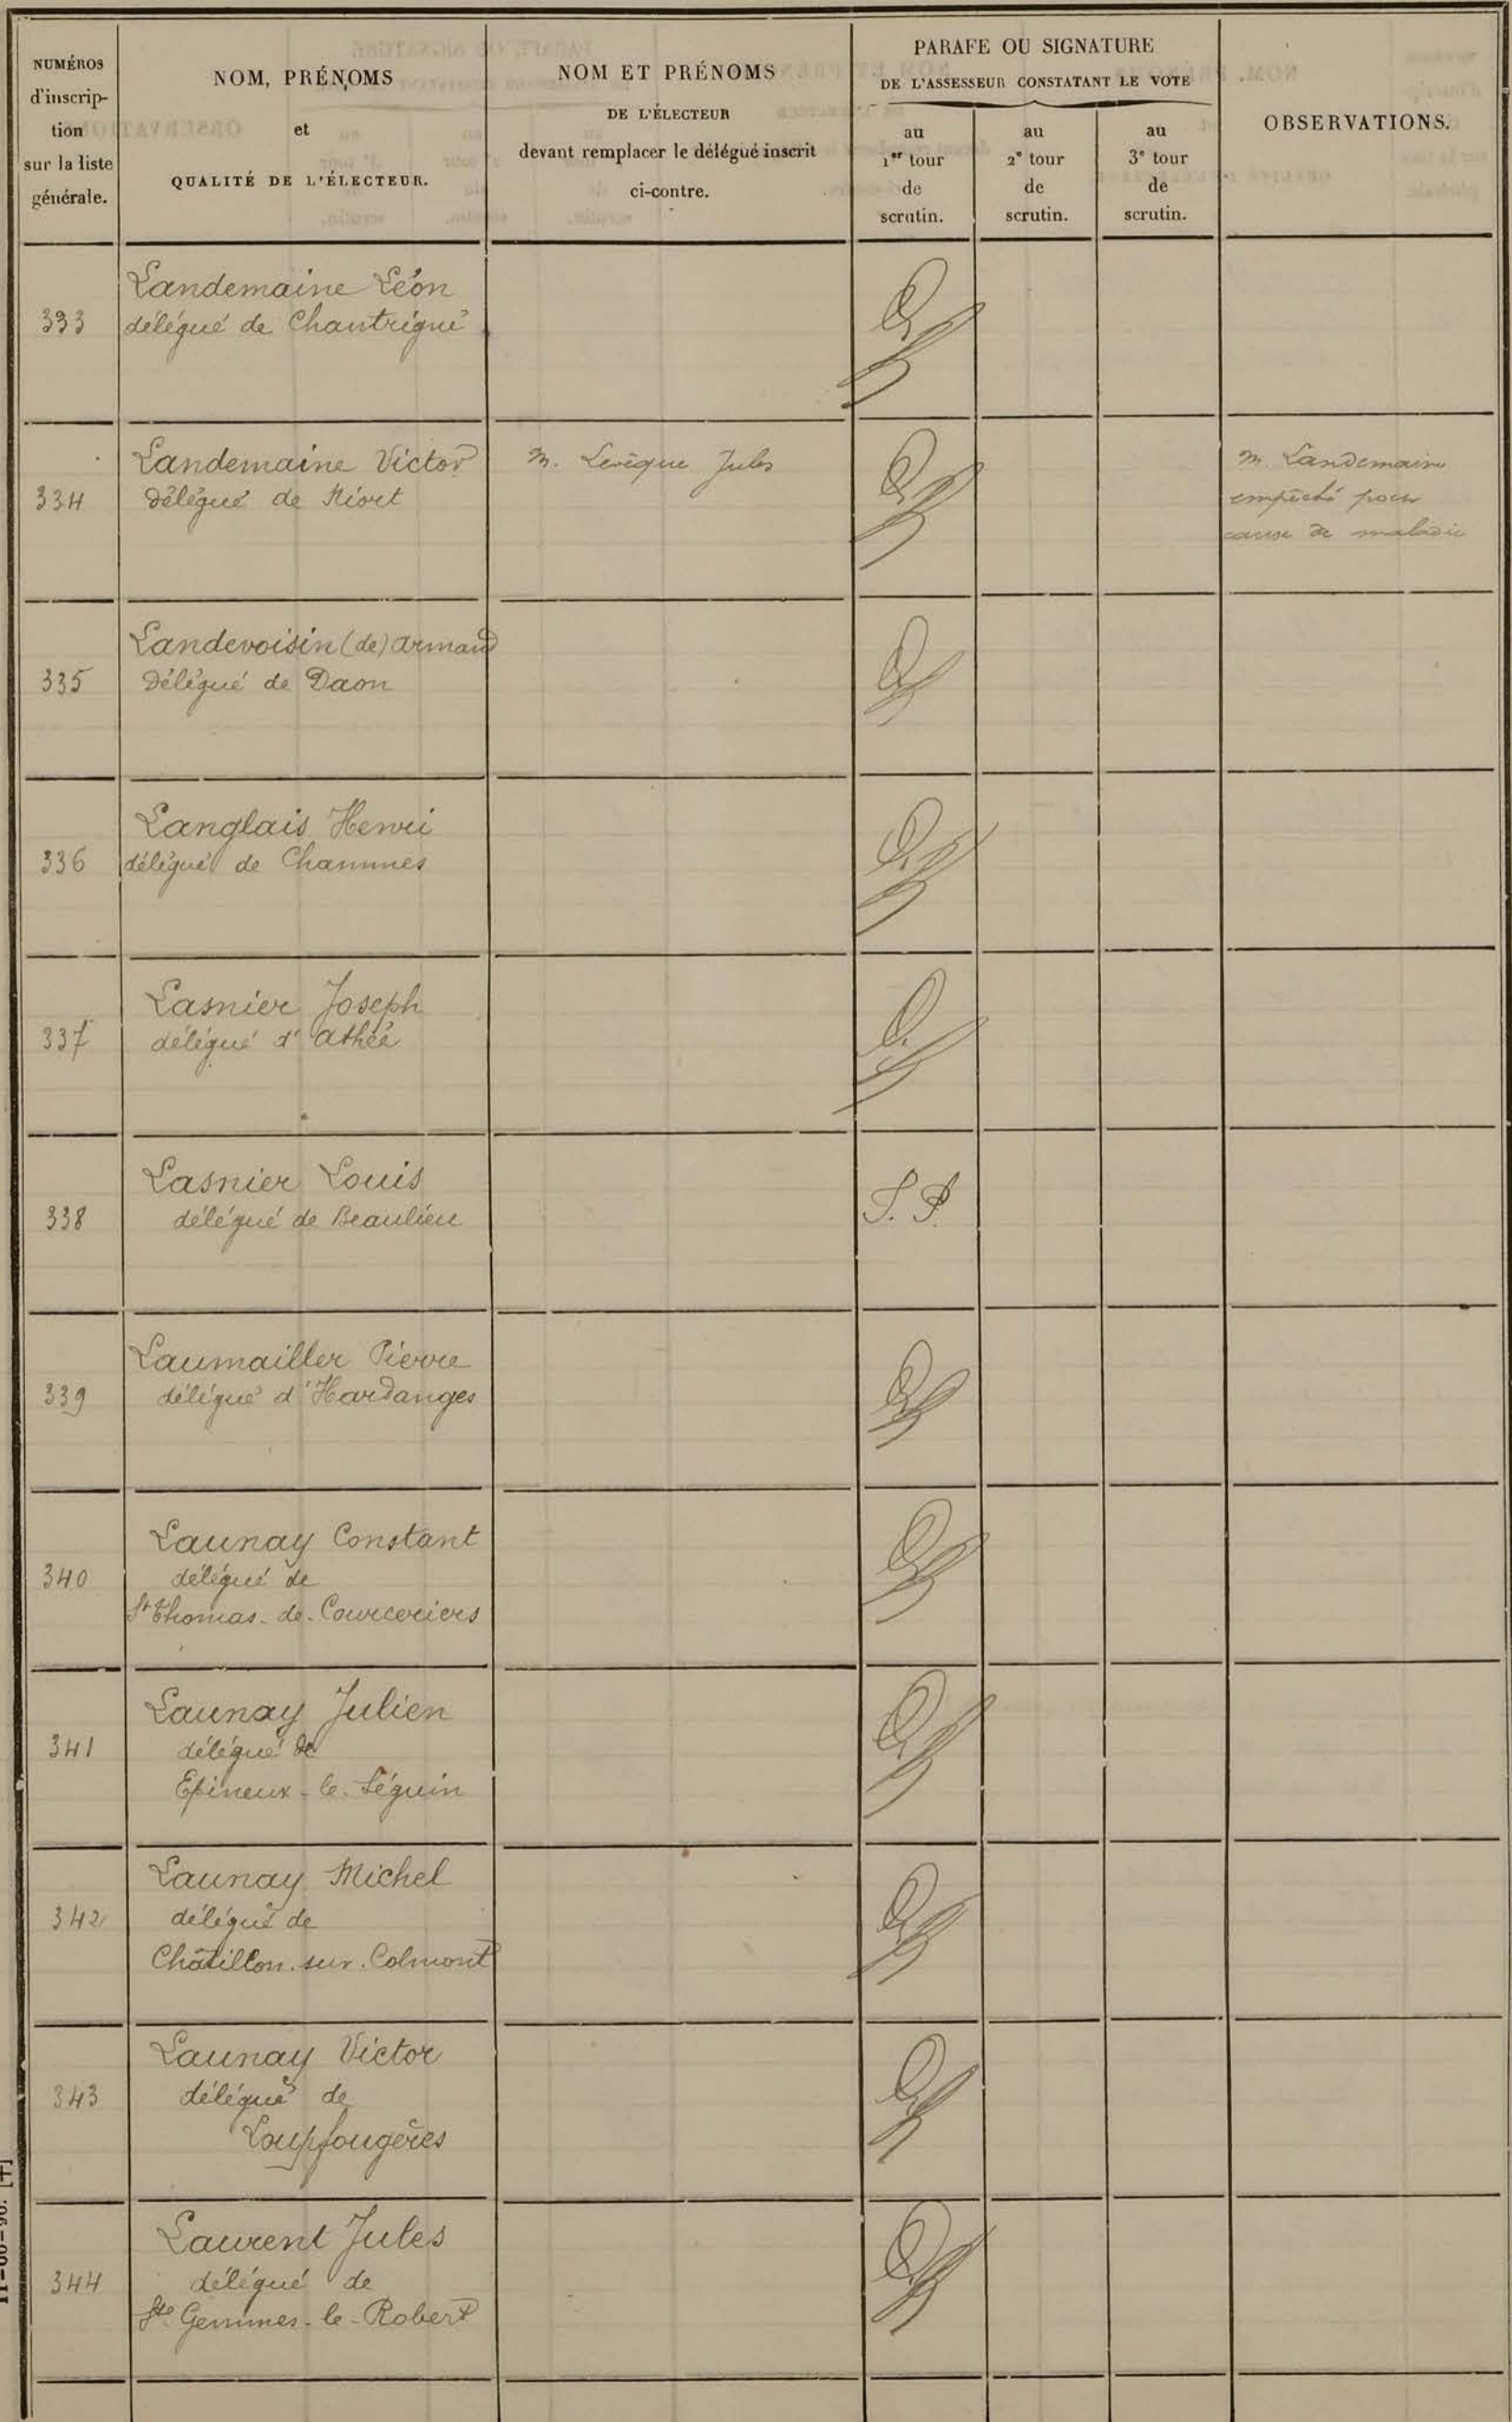 NUMÉROS
d'inscrip-
tion
sur la liste
générale.
NOM, PRÉNOMS
et
QUALITÉ DE L'ÉLECTEUR.
NOM ET PRÉNOMS
DE L'ÉLECTEUR
devant remplacer le délégué inscrit
ci-contre.
PARAFE OU SIGNATURE
DE L'ASSESSEUR CONSTATANT LE VOTE
au
1er tour
de
scrutin.
au
2e tour
de
scrutin.
au
3e tour
de
scrutin.
OBSERVATIONS.
Landemaine Léon
333 délégué de Chantrigné
Landemaine Victor M. Levêque Jules M. Landemaine
334 délégué de Niort empêché pour
cause de maladie
Landevoisin (de) Armand
335 délégué de Daon
Langlais Henri
336 délégué de Chammes
Lasnier Joseph
337 délégué d'Athée
Lasnier Louis
338 délégué de Beaulieu S. P.
Laumailler Pierre
339 délégué d'Hardanges
Launay Constant
340 délégué de
St Thomas-de-Courceriers
Launay Julien
341 délégué de
Epineux-le-Séguin
Launay Michel
342 délégué de
Châtillon-sur-Colmont
Launay Victor
343 délégué de
Loupfougères
Laurent Jules
344 délégué de
Ste Gemmes-le-Robert